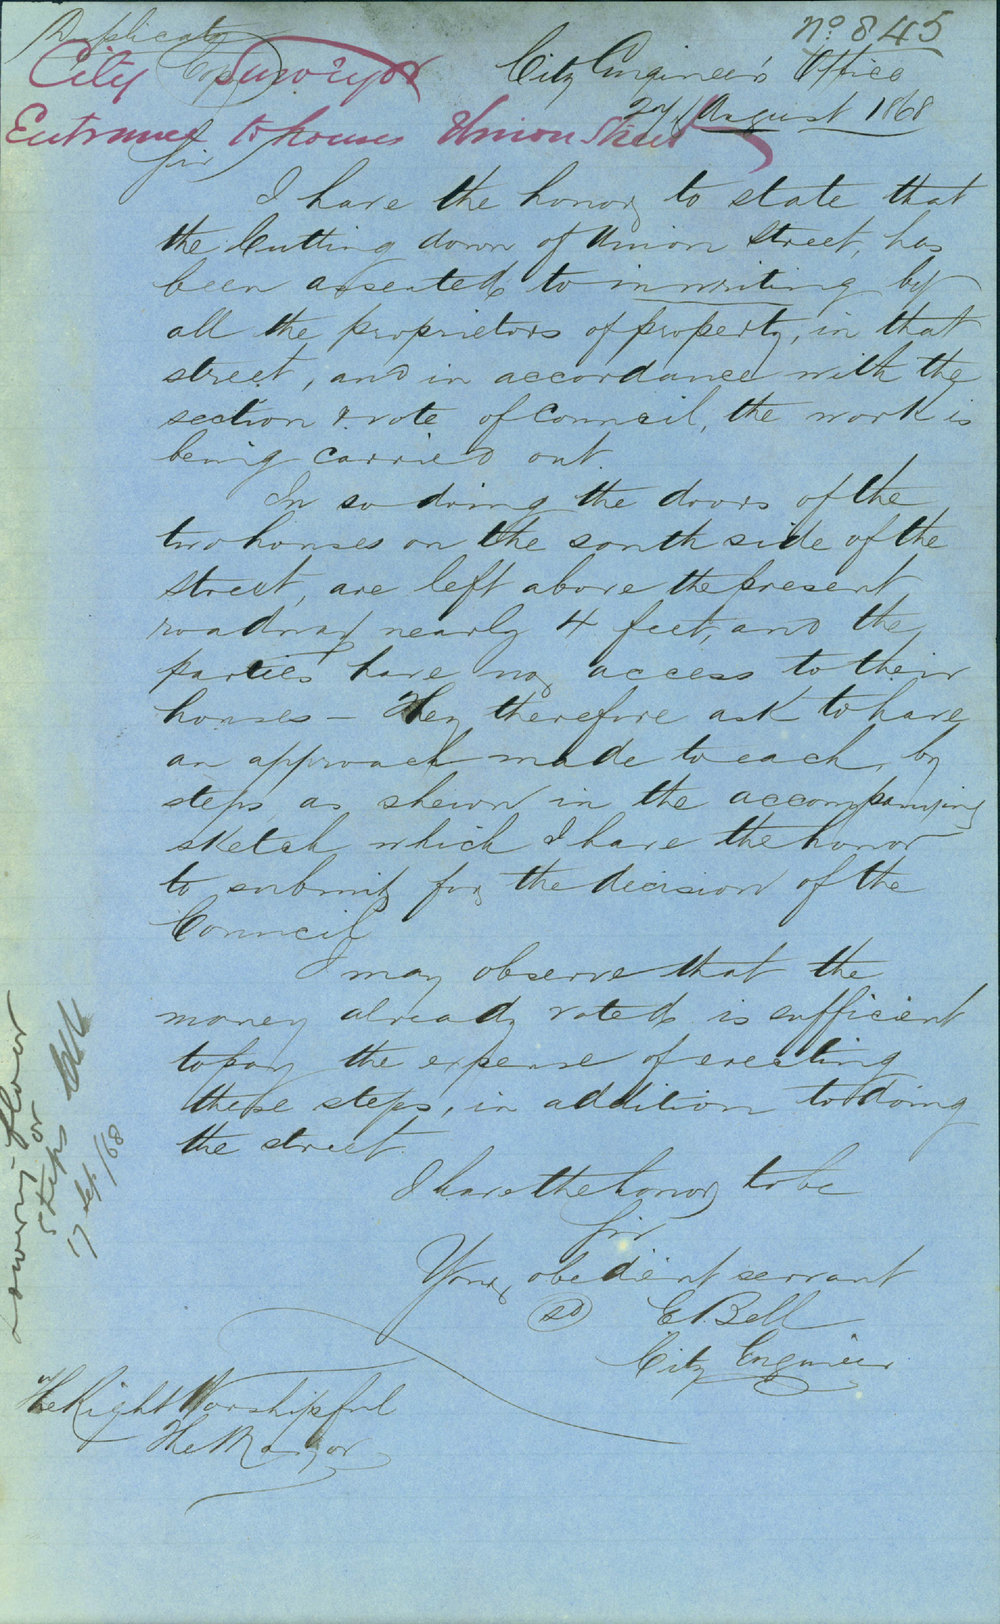 Duplicate
Copy
No 845
City Surveyor
City Engineer's Office
August 1868
Entrance to houses Union Street
Sir
I have the honor to state that
the Cutting down of Union Street, has
been assented to in writing by
all the proprietors of property, in that
street, and in accordance with the
section & vote of Council, the work is
being carried out.
In so doing the doors of the
two houses on the south side of the
street, are left above the present
roadway nearly 4 feet, and the
parties have no access to their
houses – They therefore ask to have
an approach made to each, by
steps as shewn in the accompanying
sketch which I have the honor
to submit for the decision of the
Council
I may observe that the
money already voted is sufficient
to pay the expense of erecting
these steps, in addition to doing
the street.
I have the honor to be
Sir
Your obedient servant
(sd) E Bell
City Engineer
The Right Worshipful
The Mayor
Lowering floor
or
steps
17 Sep/68